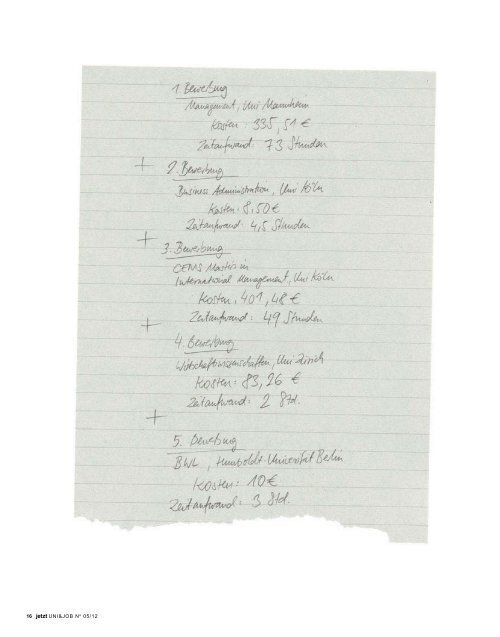 1. Bewerbung
Management, Uni Mannheim
Kosten: 335,51 €
Zeitaufwand: 73 Stunden
+
2. Bewerbung
Business Administration, Uni Köln
Kosten: 8,50 €
Zeitaufwand: 4,5 Stunden
+
3. Bewerbung
CEMS Master in
International Management, Uni Köln
Kosten: 401,48 €
Zeitaufwand: 49 Stunden
+
4. Bewerbung
Wirtschaftswissenschaften, Uni Zürich
Kosten: 83,26 €
Zeitaufwand: 2 Std.
+
5. Bewerbung
BWL, Humboldt Universität Berlin
Kosten: 10 €
Zeitaufwand: 3 Std.
16 jetzt UNI&JOB N° 05/12